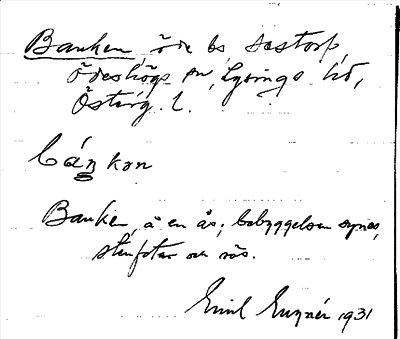 Banken öde bs Sestorp,
Ödeshögs sn, Lysings hd,
Österg. l.
bánkon
Banken, å en ås; bebyggelsen synes,
stenfotar och rös.
Emil 1931